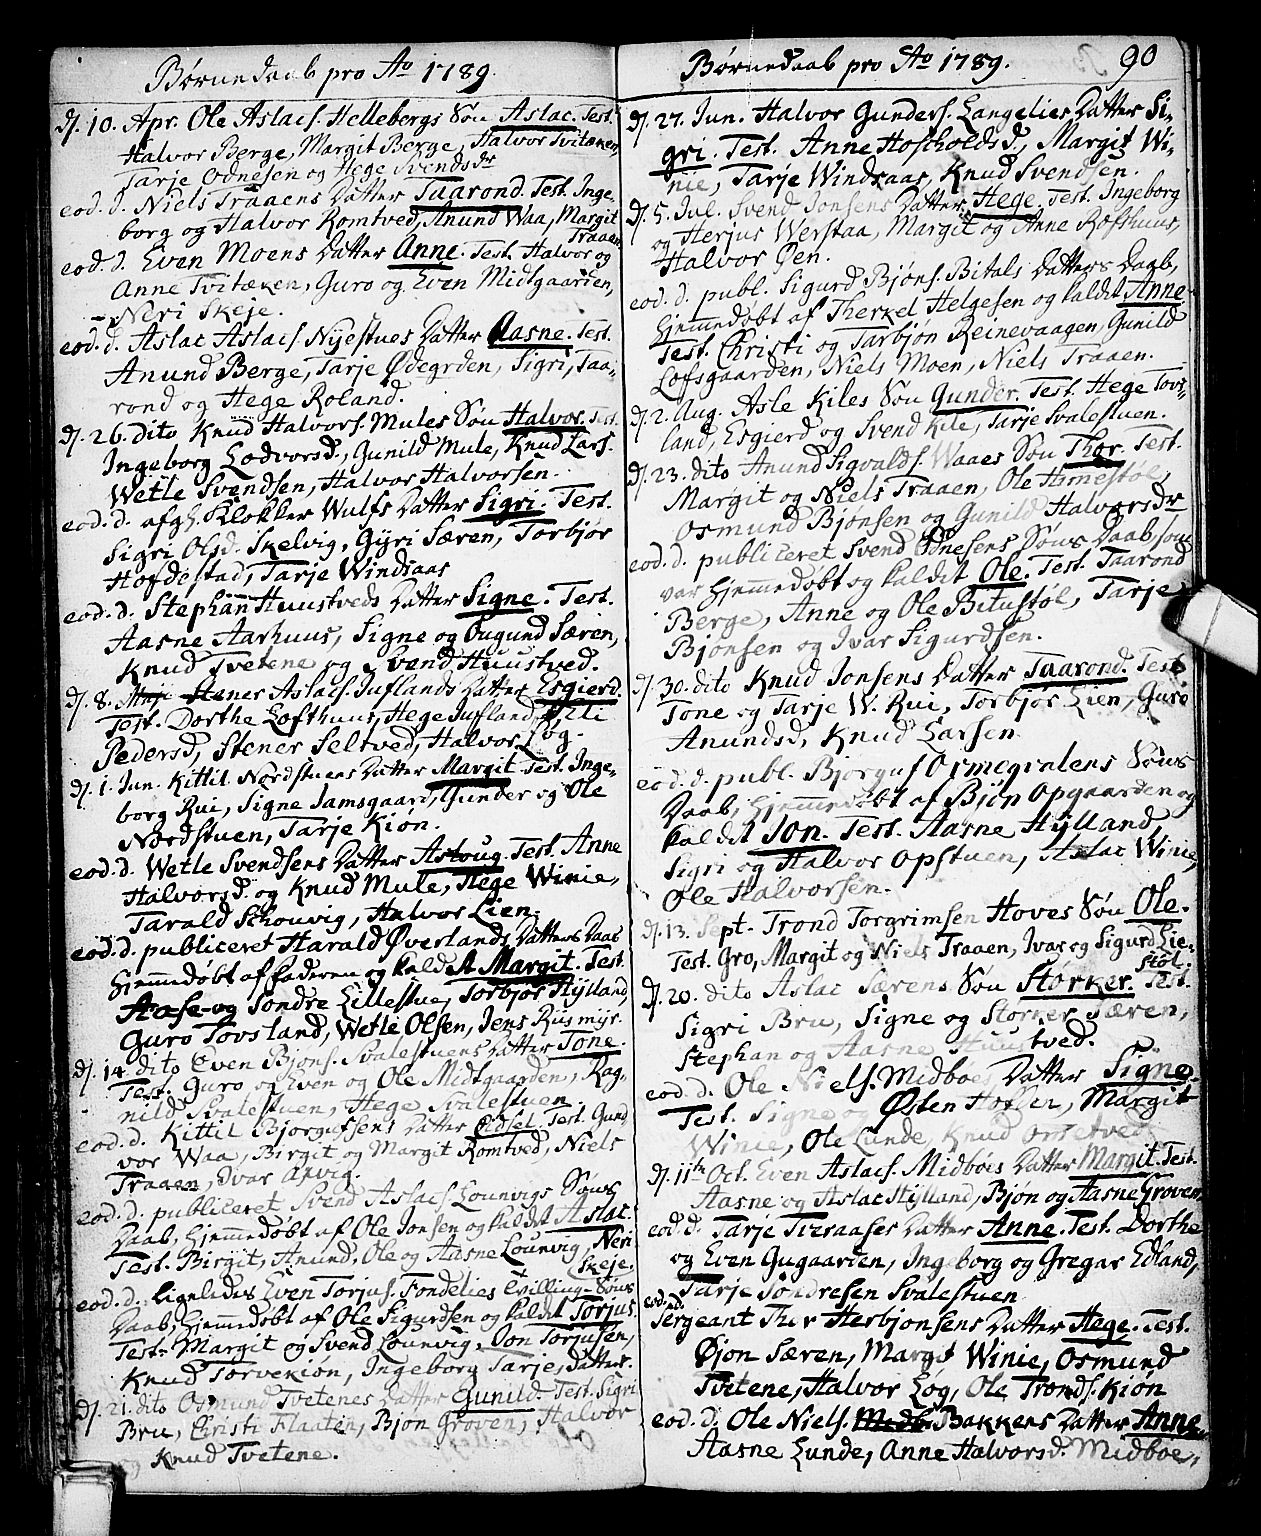 Børnedaab pro Ao 1789.
D. 10. Apr. Ole Aslacs. Hellebergs Søn Aslac. Test.
Halvor Berge, Margit Berge, Halvor Tvitæken,
Tarje Odnesen og Hege Svendsdr
eod. d. Niels Traaens Datter Taarond. Test. Inge-
borg og Halvor Romtved, Anund Waa, Margit
Traaen
eod. d. Even Moens Datter Anne. Test. Halvor og
Anne Tvitæken, Guro og Even Midtgaarden,
Neri Skeje.
eod. d. Aslac Aslacs. Nyestues Datter Aasne. Test.
Anund Berge, Tarje Ødegrden, Sigri, Taa-
rond og Hege Roland.
D. 26. dito Knud Halvors. Mules Søn Halvor. Test.
Ingeborg Lodvorsd., Gunild Mule, Knud Lars.
Wetle Svendsen, Halvor Halvorsen.
eod. d. afg. Klokker Wulfs Datter Sigri. Test.
Sigri Olsd. Skelvig, Gyri Særen, Torbjør
Hofdestad, Tarje Windsaas
eod. d. Stephan Huustveds Datter Signe. Test.
Aasne Aarhuus, Signe og Ougund Særen,
Knud Tvetene og Svend Huustved.
D. 8. Maje Stener Aslacs. Juflands Datter Esgierd.
Test. Dorthe Lofthuus, Hege Jufland,
Pedersd, Stener Seltved, Halvor Løg.
D. 1. Jun. Kittil Nordstuens Datter Margit. Test. Inge-
borg Rui, Signe Jamsgaard, Gunder og Ole
Nordstuen, Tarje Kiøn.
eod. d. Wetle Svendsens Datter Asloug. Test. Anne
Halvorsd. og Knud Mule, Hege Winie,
Tarald Schouvig, Halvor Lien.
eod. d. publiceret Harald Øverlands Datters Daab
Hjemmedøbt af Faderen og kaldet Margit. Test.
Aase og Sondre Lillestue, Torbjør Hylland,
Guro Tovsland, Wetle Olsen, Jens Riismyr.
D. 14. dito Even Bjøns. Svalestuens Datter Tone.
Test. Guro og Even og Ole Midtgaarden, Rag-
nild Svalestuen, Hege Svalestuen
eod. d. Kittil Bjorgufsens Datter Eidsel. Test. Gund
vor Waa, Birgit og Margit Romtved, Niels
Traaen, Ivar Arvig.
eod. d. publiceret Svend Aslacs. Lounvigs Søns
Daab, Hjemmedøbt af Ole Jonsen og kaldet Aslac.
Test. Birgit, Anund, Ole og Aasne Lounvig, Neri
Skeje.
eod. d. Ligeledes Even Torjus. Fondelies Tvilling-Søns
Daab, Hjemmedøbt af Ole Sigurdsen og kaldet Torjus
Test. Margit og Svend Lounvig, Jon Torjusen,
Knud Torvekiøn, Ingeborg Tarje, datter.
D. 21. dito Osmund Tvetenes Datter Gunild. Test. Sigri
Bru, Christi Flaaten, Bjøn Groven, Halvor
Knud Tvetene.
Børnedaab pro Ao 1789. 90
D. 27. Jun. Halvor Gunders. Langelies Datter Si-
gri. Test. Anne Hoskoldsd, Margit Wi-
nie, Tarje Windsaas, Knud Svendsen.
D. 5. Jul. Svend Jonsens Datter Hege. Test. Ingeborg
og Herjus Werstaa, Margit og Anne Rofthuus,
Halvor Øen.
eod. d. publ. Sigurd Bjøns. Bitals Datters Daab,
Hjemmedøbt af Therkel Helgesen og kaldet Anne.
Test. Christi og Tarbjøn Reinevaagen, Gunild
Lofsgaarden, Niels Moen, Niels Traaen.
D. 2. Aug. Asle Kiles Søn Gunder. Test. Hege Tovs-
land, Esgierd og Svend Kile, Tarje Svalestuen.
D. 23. dito Anund Sigvalds. Waaes Søn Thor. Test.
Margit og Niels Traaen, Ole Himestøl
Osmund Bjønsen og Gunild Halvorsdr
eod. d. publiceret Svend Ødnesens Søns Daab, som
var Hjemmedøbt og kaldet Ole. Test. Taarond
Berge, Anne og Ole Bitustøl, Tarje
Bjønsen og Ivar Sigurdsen.
D. 30. dito Knud Jonsens Datter Taarond. Test.
Tone og Tarje W. Rui, Torbjør Lien, Guro
Anundsd, Knud Larsen
eod. d. publ. Bjorguf Ormegralens Søns
Daab, Hjemmedøbt af Bjøn Opgaarden og
kaldet Jon. Test. Aasne Hylland
Sigri og Halvor Opstuen, Aslac Winie,
Ole Halvorsen.
D. 13. Sept. Trond Torgrimsen Hoves Søn Ole.
Test. Gro, Margit og Niels Traaen, Ivar og Sigurd Lie-
støl.
D. 20. dito Aslac Særens Søn Storker. Test.
Sigri Bru, Signe og Storker Særen,
Stephan og Aasne Huustved.
eod. d. Ole Niels. Midboes Datter Signe.
Test. Signe og Østen Hofder, Margit
Winie, Ole Lunde, Knud Ormtved.
D. 11te Oct. Even Aslacs. Midbøes Datter Margit. Test.
Aasne og Aslac Hylland, Bjøn og Aasne Groven
eod. d. Tarje Tveraases Datter Anne. Test. Dorthe
og Even Gugaarden, Ingeborg og Gregar Edland,
Tarje Søndresen Svalestuen
eod. d.
Sergeant Thor Herbjønsens Datter Hege. Test.
Øjon Særen, Margit Winie, Osmund
Tvitene, Halvor Løg, Ole Tronds. Kiøn
eod. d. Ole Niels. Midb. Bakkens Datter Anne
Aasne Lunde, Anne Halvorsd. Midbøe,